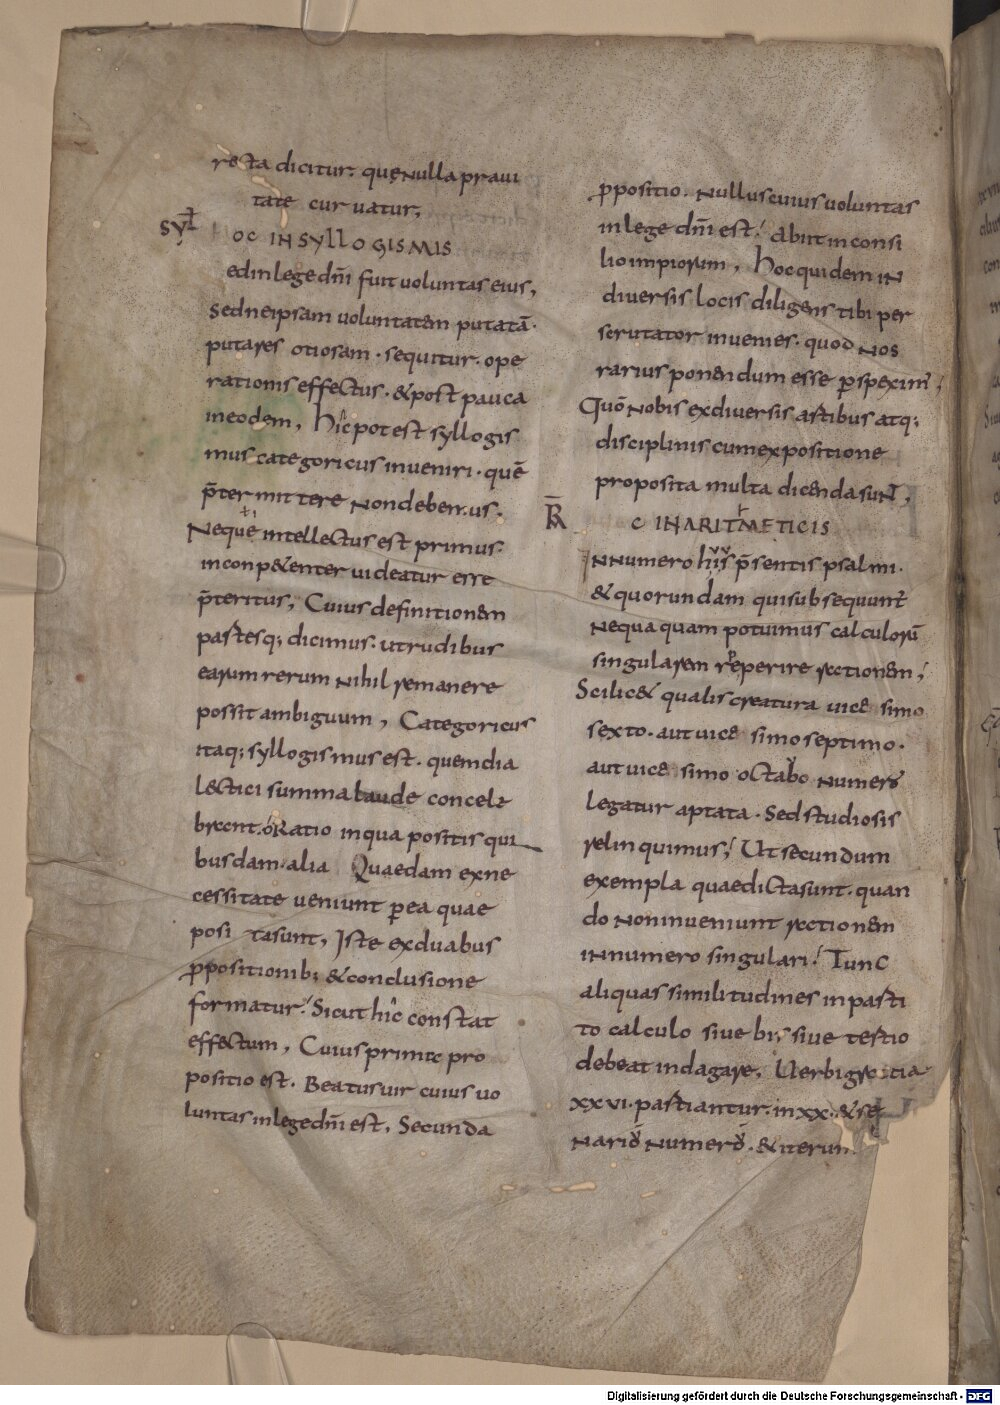 recta dicitur. quęNulla praui
tate curuatur;
SYŁ
OC IN SYLLOGISMIS
ed in lege dn̄i fuit uoluntas eius,
Sed ne ipsam uoluntatem putatā.
putares otiosam. sequitur. ope
rationis effectus. & post pauca
in eodem, hîc potest syllogis
mus categoricus inueniri. quē
p̄ter mittere non debemus.
Neque intellectus est primus.
inconp&enter uideatur esse
p̄teritus, Cuius definitionem
partesq; dicimus. ut rudibus
earum rerum nihil remanere
possit ambiguum, Categoricus
itaq; syllogismus est. quem dia
lectici summa laude concele
brent. Ratio in qua positis qui
busdam. alia Quaedam ex ne
cessitate ueniunt p̱ ea quae
posi ta sunt, Iste ex duabus
p̱positionib; & conclusione
formatur. Sicut hîc constat
effectum, Cuius primitc pro
positio est. Beatus uir cuius uo
luntas in lege dn̄i est, Secunda
p̱positio. Nullus cuius uoluntas
in lege dn̄i est. abiit in consi
lio impiorum, hoc quidem in
diuersis locis diligens tibi per
scrutator inuenies. quod nos
rarius ponendum esse p̱speximꝰ,
Quō nobis ex diuersis artibus atq;
disciplinis cum expositione
proposita multa dicenda sunt,
R̄A
C IN ARITMETICIS
In numero huis p̄sentis psalmi.
& quorundam qui subsequunt̄
Nequaquam potuimus calculorū
singularem reperire rectionem,
Scilic& qualis creatura uice simo
sexto. aut uice simo septimo.
aut uice simo octabo numero
legatur aptata. Sed studiosis
relinquimus, Ut secundum
exempla quae dicta sunt. quan
do non inueniunt rectionem
in numero singulari. Tunc
aliquas similitudines in parti
to calculo siue bis siue tertio
debeat indagare, Uerbi gratia
xxvi. partiantur. in xx. & se
nario numero. & iterum
Digitalisierung gefördert durch die Deutsche Forschungsgemeinschaft - DFG